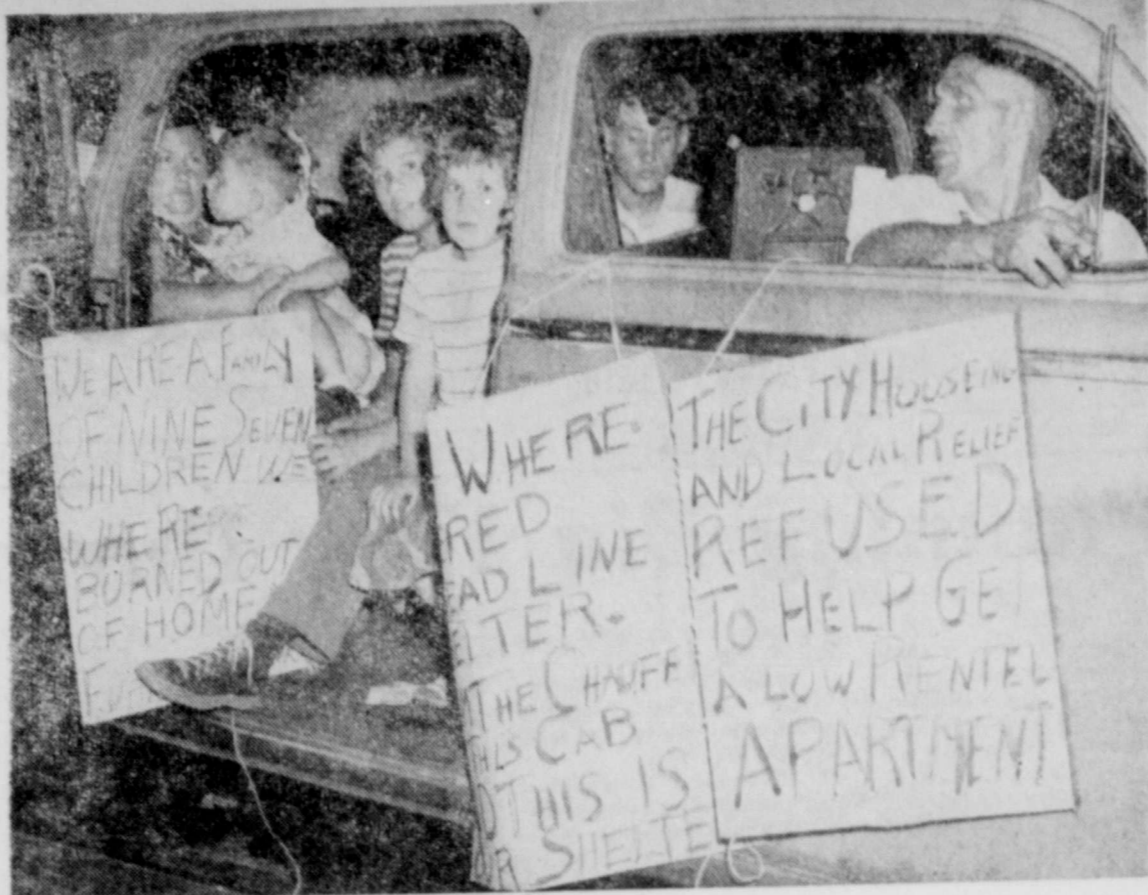 WE ARE A FAMILY
OF NINE SEVEN
CHILDREN WE
WHERE
BURNED OUT
OF HOME
WHERE.
RED
EAD LINE
ETTER.
THE CHAUFF
HIS CAB
THIS IS
SHELTE
THE CITY HOUSEING
AND LOCAL RELIEF
REFUSED
TO HELP GE
A LOW RENTEL
APARTMENT